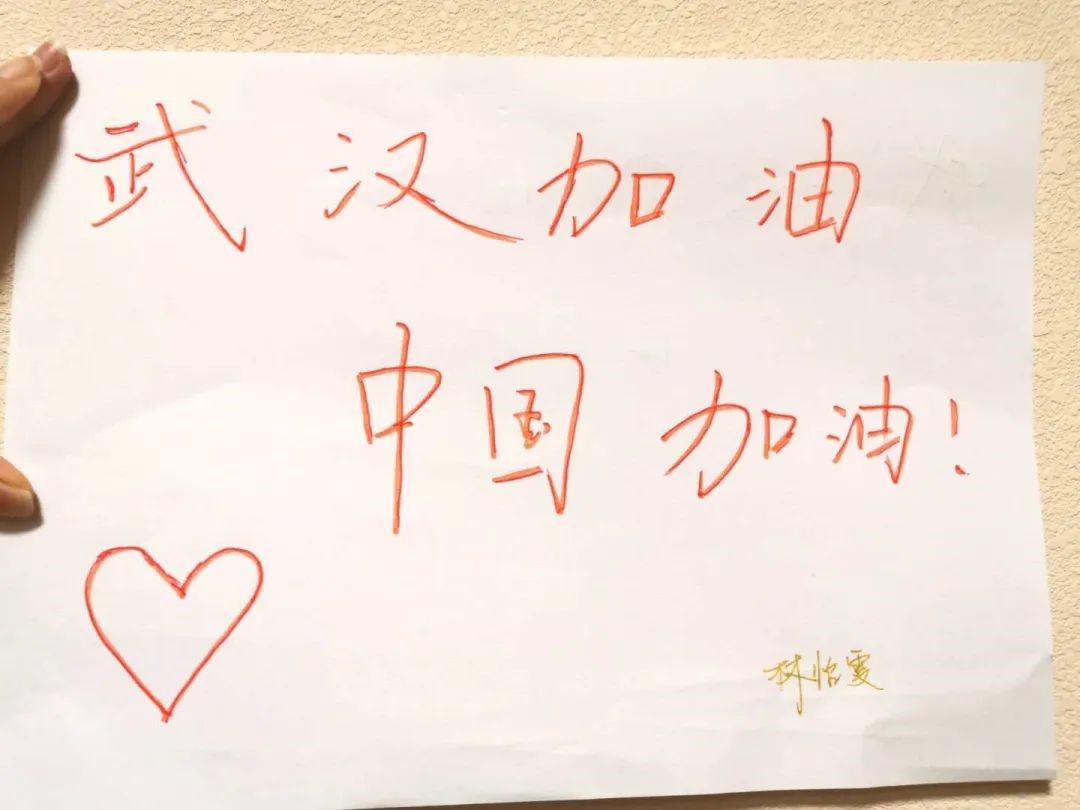 武汉加油
中国加油!
林怡雯